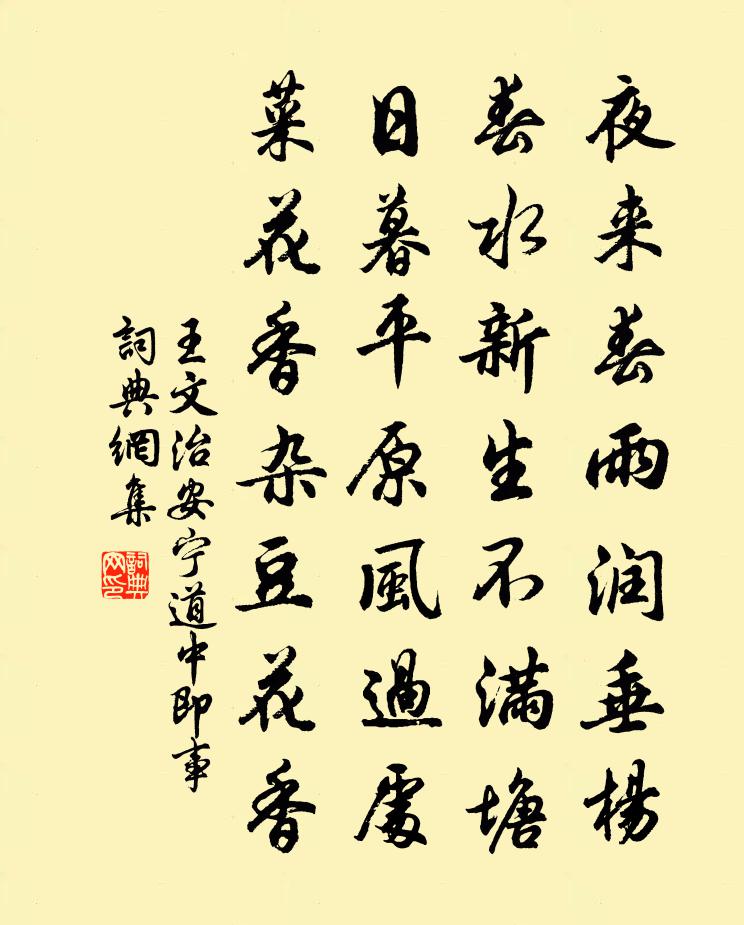 夜来春雨润垂楊
春水新生不滿塘
日暮平原風過處
菜花香杂豆花香
王文治安宁道中即事
詞典網集
詞典網印